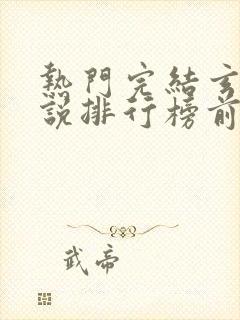 熱門完結玄
說排行榜前
武帝